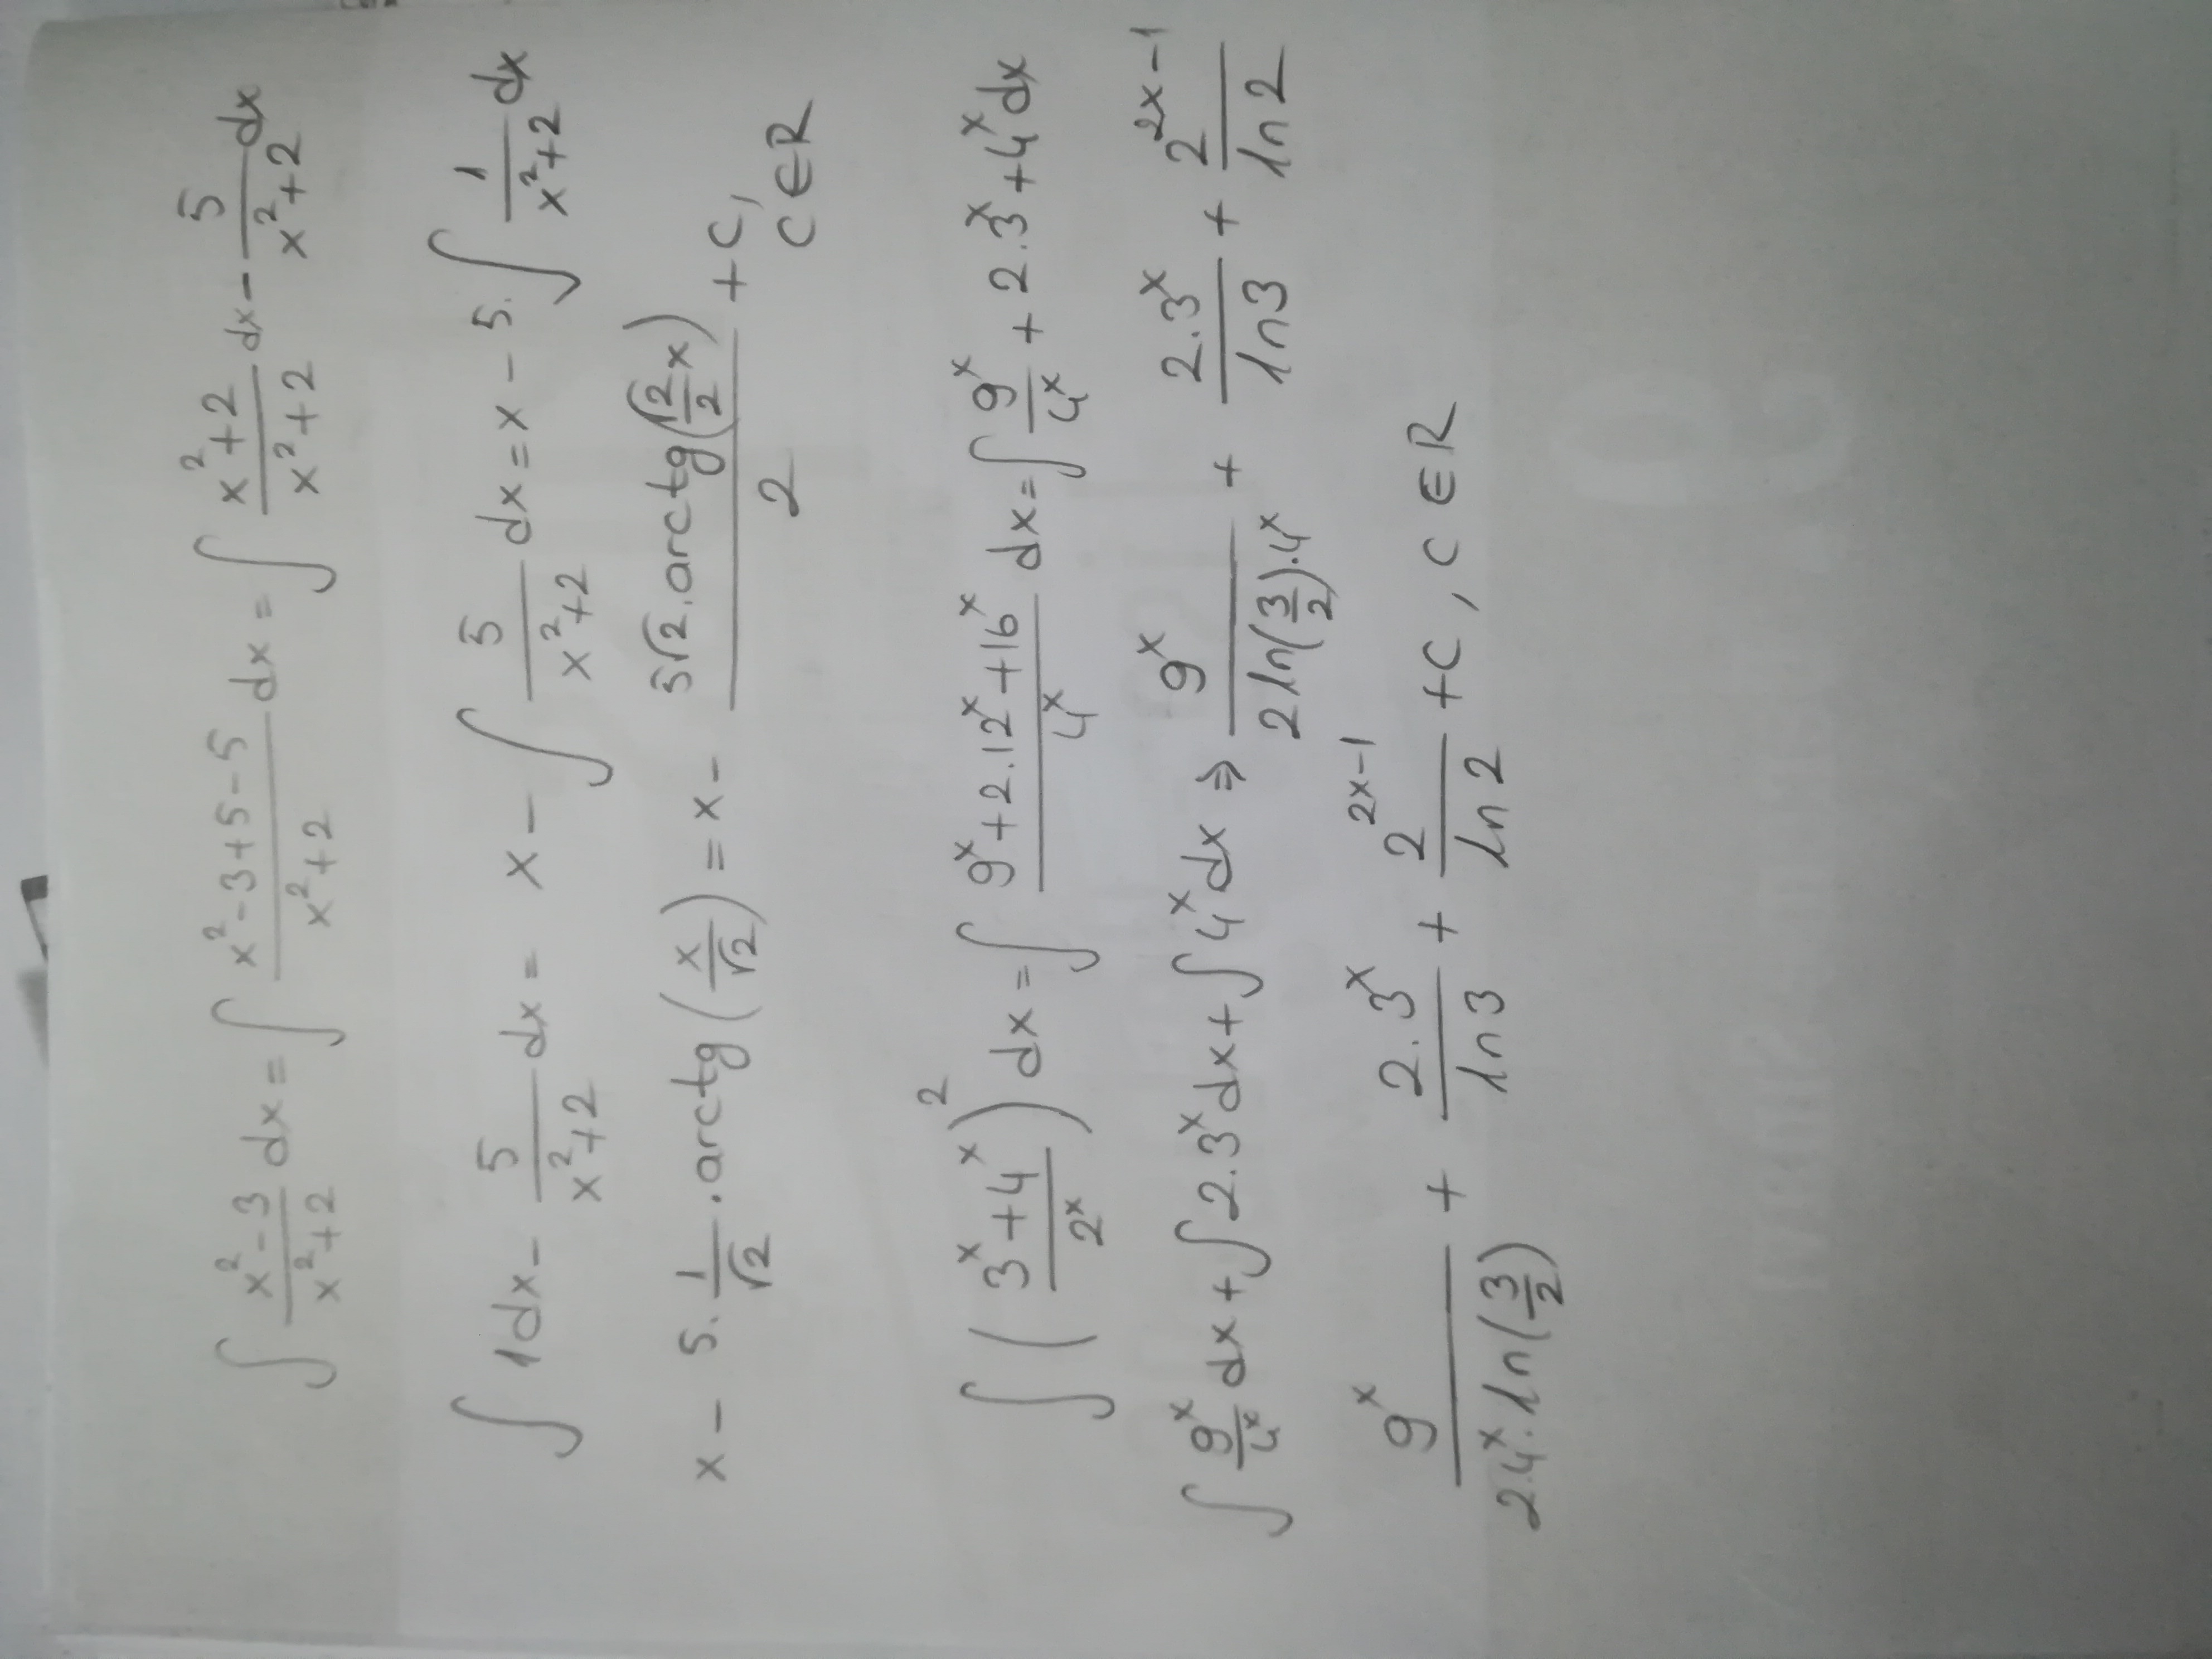 ∫ (x²-3)/(x²+2) dx = ∫ (x²-3+5-5)/(x²+2) dx = ∫ (x²+2)/(x²+2) dx - 5/(x²+2) dx
∫ 1dx - 5/(x²+2) dx = x - ∫ 5/(x²+2) dx = x - 5. ∫ 1/(x²+2) dx
x - 5. 1/√2 . arctg (x/√2) = x - (5√2 . arctg(√2/2 x))/2 + C, C ∈ R
∫ ((3ˣ+4ˣ)/2ˣ)² dx = ∫ (9ˣ+2.12ˣ+16ˣ)/4ˣ dx = ∫ 9ˣ/4ˣ + 2.3ˣ+4ˣ dx
∫ 9ˣ/4ˣ dx + ∫ 2.3ˣ dx + ∫ 4ˣ dx ⇒ 9ˣ/(2 ln(3/2).4ˣ) + 2.3ˣ/ln3 + 2²ˣ⁻¹/ln2
9ˣ/(2.4ˣ.ln(3/2)) + 2.3ˣ/ln3 + 2²ˣ⁻¹/ln2 + C, C ∈ R